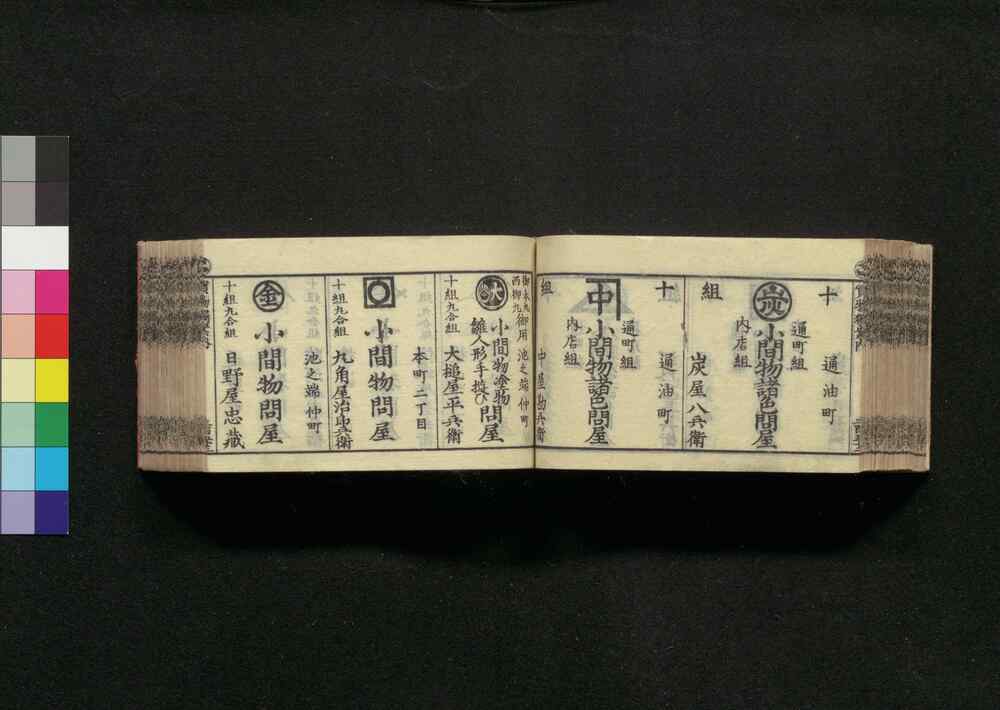 十組
通油町
通町組
内店組
炭
小間物諸色問屋
炭屋八兵衛
十組
通油町
通町組
内店組
中
小間物諸色問屋
中屋
兵衛
御本丸
西御丸
御用
池之端仲町
大
小間物塗物
雛人形手遊ひ
問屋
十組九合組
大槌屋平兵衛
本町二丁目
小間物問屋
十組九合組
丸角屋治郎兵衛
池之端仲町
金
小間物問屋
十組九合組
日野屋忠蔵